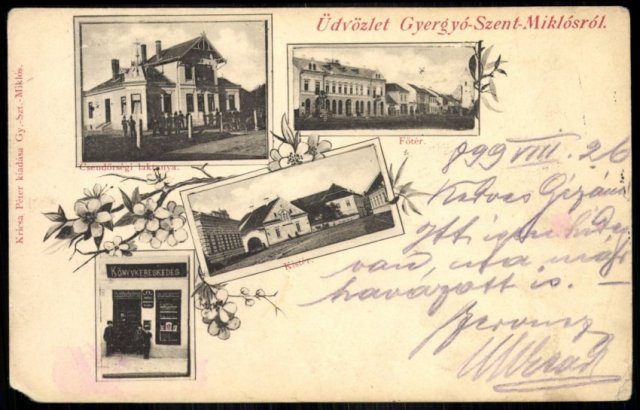 Üdvözlet Gyergyó-Szent-Miklósról.
Kricsa Péter kiadása Gy.-Szt.-Miklós.
Csendőrségi laktanya.
Főtér.
Kistér.
KÖNYVKERESKEDÉS
899 VIII. 26
Kedves Gizám
Itt igen hideg
van, ma már
havazott is. —